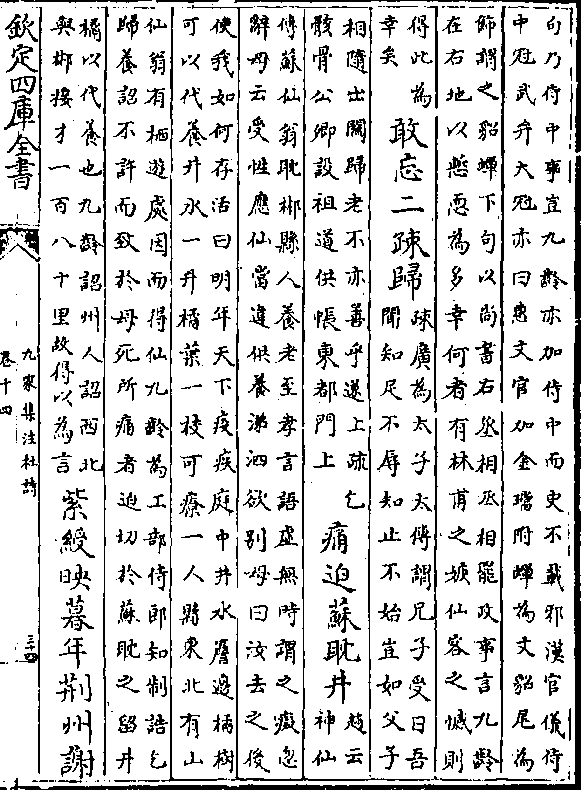 句乃侍中事豈九齡亦加侍中而史不載邪漢官儀侍
中冠武弁大冠亦曰惠文官加金璫附蟬為文貂尾為
飾謂之貂蟬下句以尚書右丞相丞相罷政事言九齡
在右地以慙恧為多幸何者有林甫之娭仙客之憾則
得此為
幸矣
敢忘二疎歸
疎廣為太子太傅謂兄子受曰吾
聞知足不辱知止不殆豈如父子
相隨出關歸老不亦善乎遂上疏乞
骸骨公卿設祖道供帳東都門上
痛迫蘇耽井
趙云
神仙
傳蘇仙翁耽郴縣人養老至孝言語虛無時謂之癡忽
辭母云受性應仙當違供養涕泗欲別母曰汝去之後
使我如何存活曰明年天下疫疾庭中井水簷邊橘樹
可以代養井水一升橘葉一枝可療一人縣東北有山
仙翁有栖遊處因而得仙九齡為工部侍郎知制誥乞
歸養詔不許而致於母死所痛者迫切於蘇耽之留井
橘以代養也九齡詔州人詔西北
與郴接才一百八十里故得以為言
紫綬映暮年荆州謝
欽定四庫全書
九家集注杜詩
卷十四
三十四